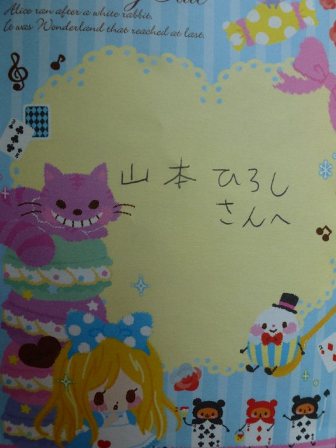 Alice ran after a white rabbit.
It was Wonderland that reached at last.
山本ひろし
さんへ